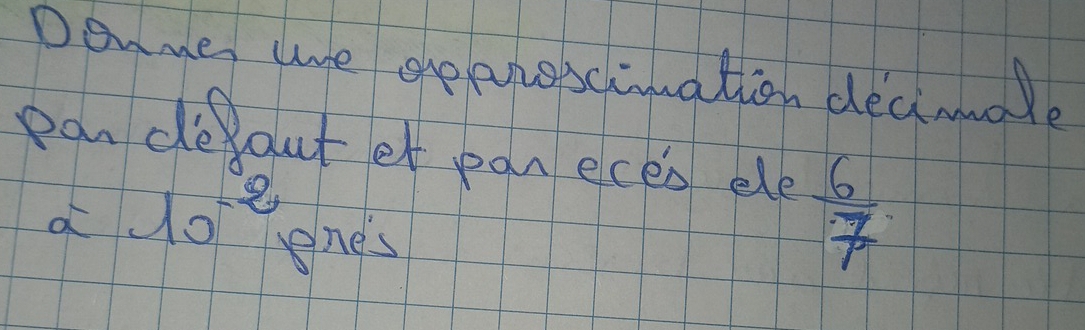 Donner une approximation décimale
par défaut et par ecés de 6/7
à 10⁻² prés